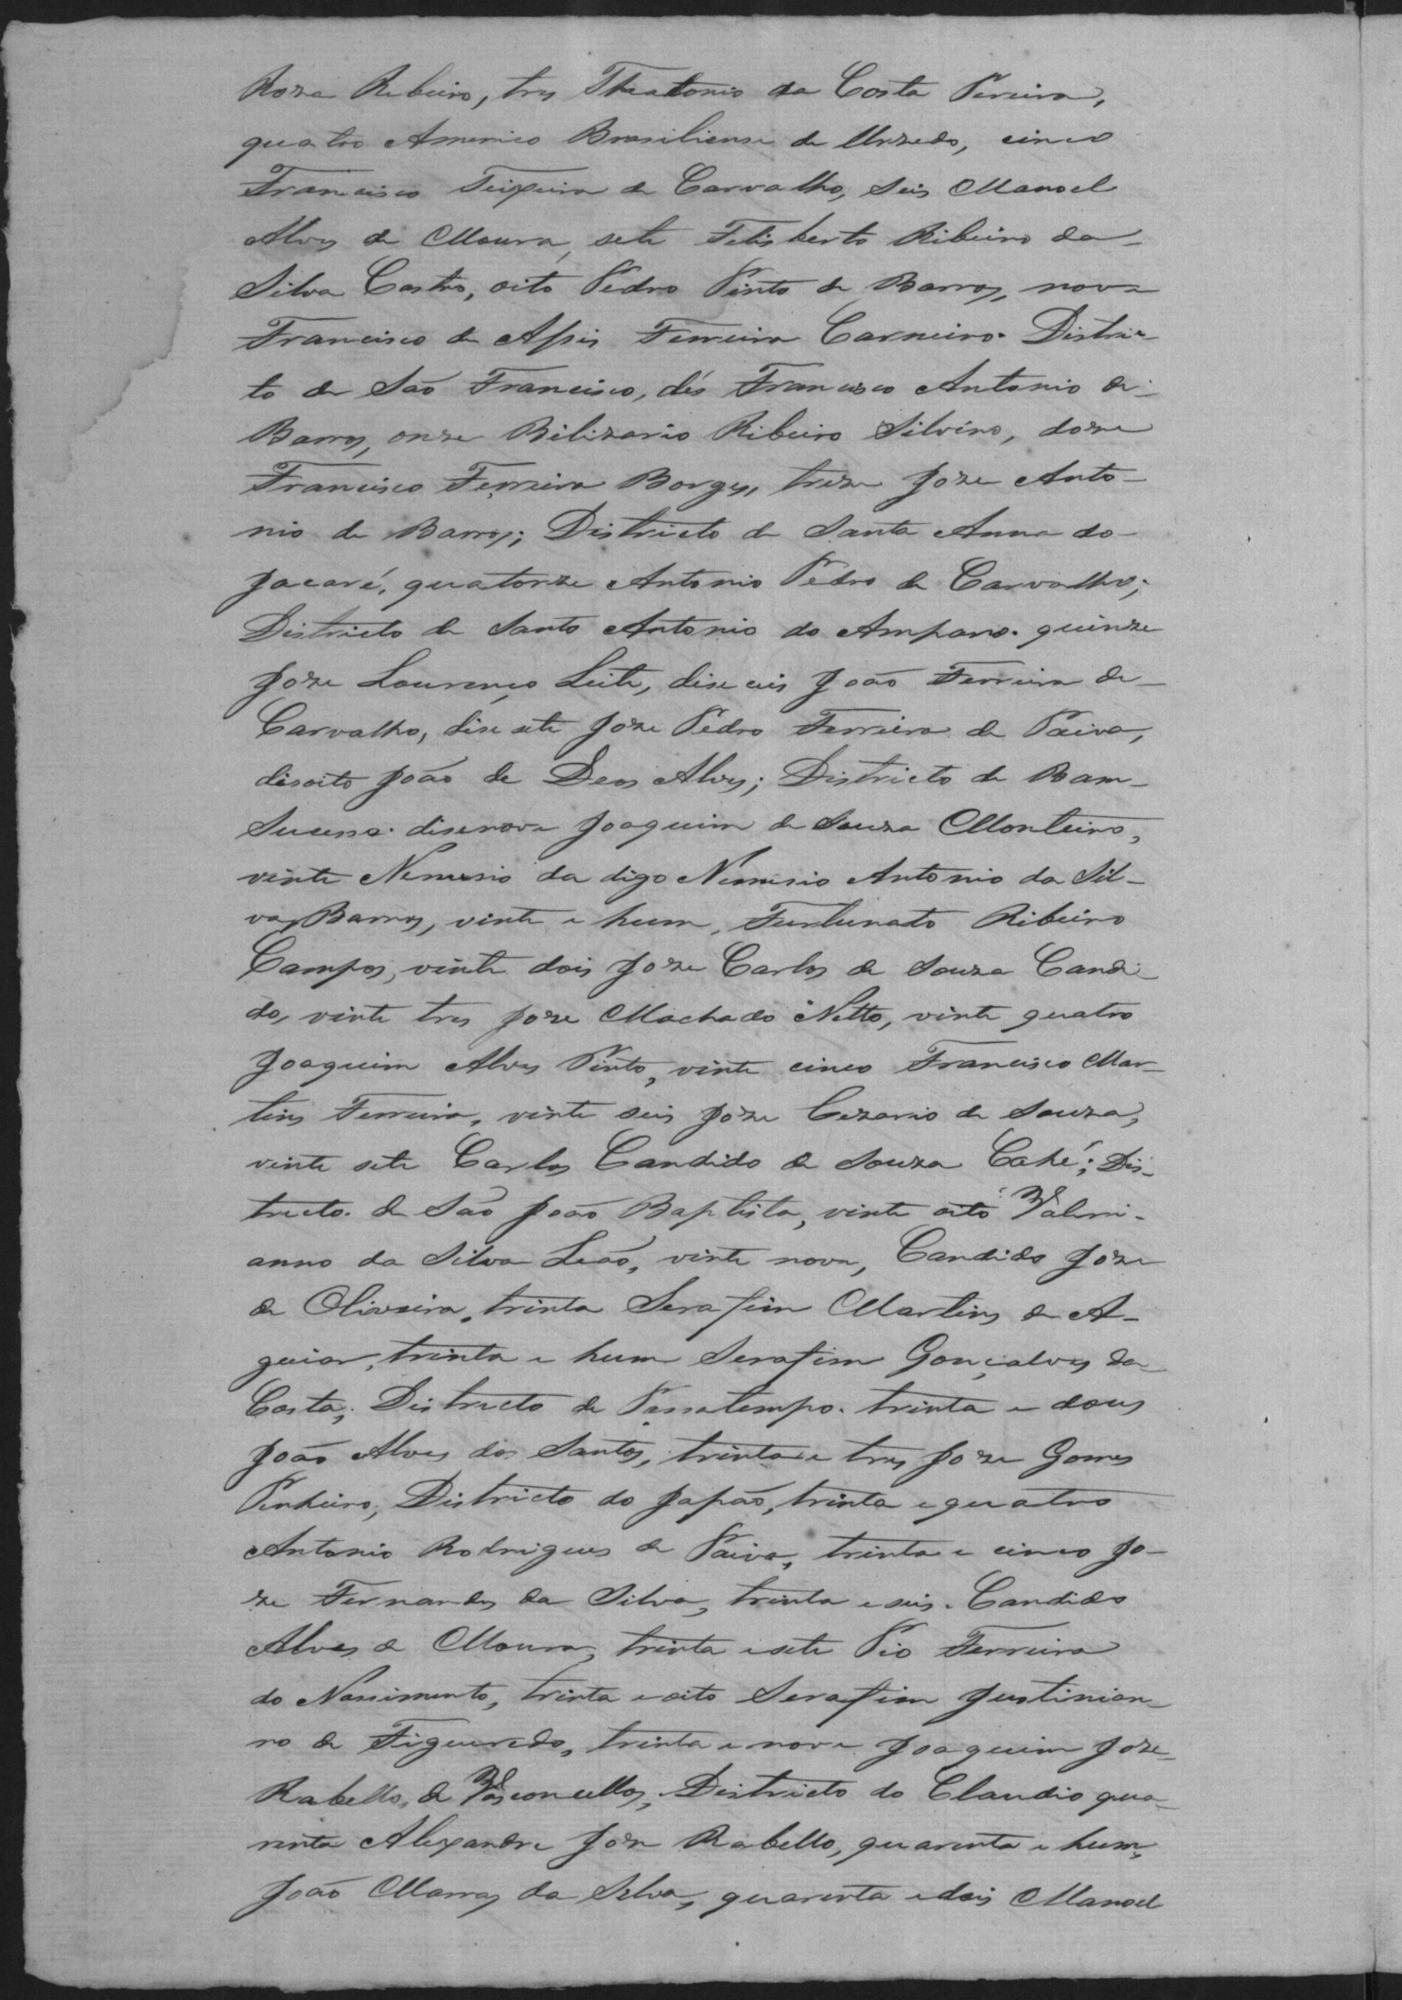 Roza Ribeiro, tres Theatonio da Costa Pereira,
quatro Americo Brasiliense de Urzedo, cinco
Francisco Teixeira de Carvalho, seis Manoel
Alves de Moura, sete Felisberto Ribeiro da
Silva Castro, oito Pedro Pinto de Barros, nove
Francisco de Assis Ferreira Carneiro. Distric
to de São Francisco, dés Francisco Antonio de
Barros, onze Bilizario Ribeiro Silvino, doze
Francisco Ferreira Borges, treze Joze Anto-
nio de Barros; Districto de Santa Anna do
Jacaré, quatorze Antonio Pedro de Carvalho;
Districto de Santo Antonio do Amparo. quinze
Joze Lourenço Leite, diseceis João Ferreira de
Carvalho, disesete Joze Pedro Ferreira de Paiva,
disoito João de Deos Alves; Districto de Bam-
Sucesso. disenove Joaquim de Souza Monteiro,
vinte Nemesio da digo Nemesio Antonio da Sil-
va Barros, vinte e hum, Furtunato Ribeiro
Campos, vinte dois Joze Carlos de Souza Candi
do, vinte tres Joze Machado Netto, vinte quatro
Joaquim Alves Pinto, vinte cinco Francisco Mar-
tins Ferreira, vinte seis Joze Cezario de Souza,
vinte sete Carlos Candido de Souza Cahé; Dis-
tricto de São João Baptista, vinte oito Valeri-
anno da Silva Leão, vinte nove, Candido Joze
de Oliveira, trinta Serafim Martins de A-
guiar, trinta e hum Serafim Gonçalves da
Costa; Districto de Passatempo. trinta e dous
João Alves dos Santos, trinta e tres Joze Gomes
Pinheiro, Districto do Japão, trinta e quatro
Antonio Rodrigues de Paiva, trinta e cinco Jo-
ze Fernandes da Silva, trinta e seis. Candido
Alves de Moura, trinta e sete Pio Ferreira
do Nassimento, trinta e oito Serafim Justinian
no de Figueredo, trinta e nove Joaquim Joze
Rabello, de Vasconcellos, Districto do Claudio qua-
renta Alexandre Joze Rabello, quarenta e hum,
João Marras da Silva, quarenta e dois Manoel